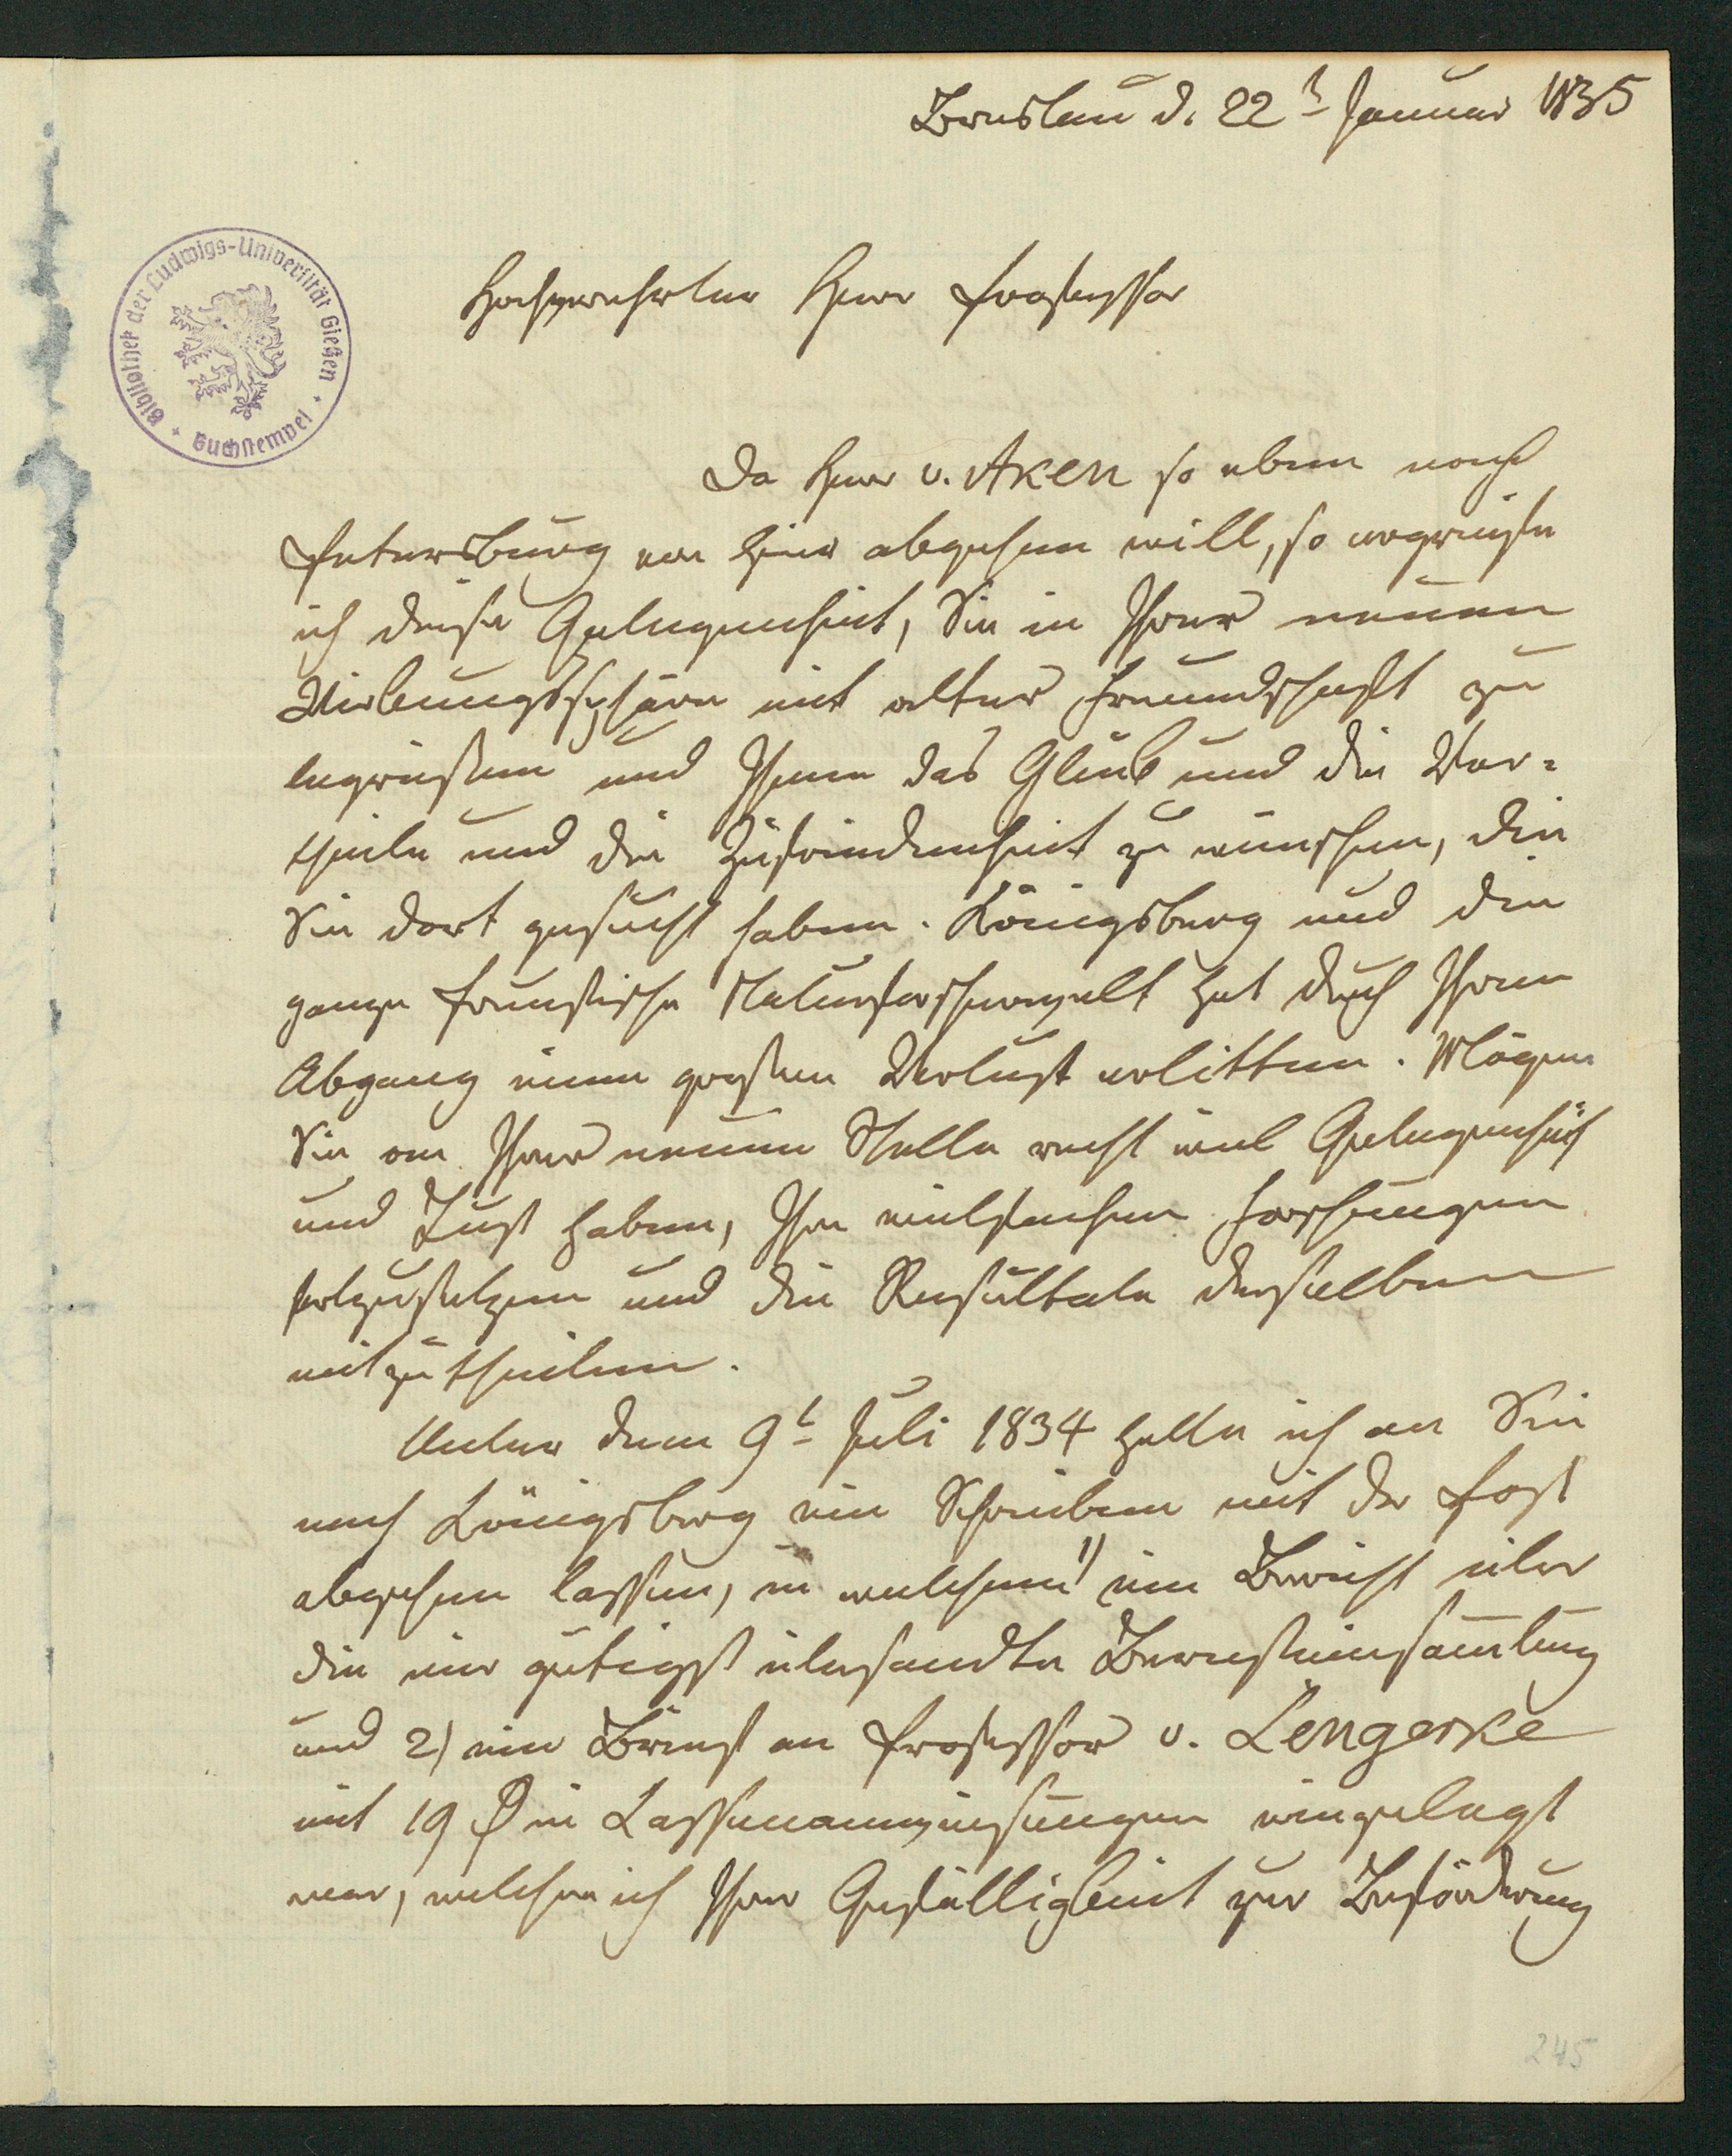 Breslau d. 22t Januar 1835
Bibliothek der Ludwigs-Universität Gießen
Buchstempel
Hochgeehrter Herr Professor
Da Herr v. Aken so eben nach
Petersburg von hier abgehen will, so ergreife
ich diese Gelegenheit, Sie in Ihrer neuen
Wirkungssphäre mit alter Freundschaft zu
begrüßen und Ihnen das Glück und die Vor-
theile und die Zufriedenheit zu wünschen, die
Sie dort gesucht haben. Königsberg und die
ganze Preußische Naturforscherwelt hat durch Ihren
Abgang einen großen Verlust erlitten. Mögen
Sie an Ihrer neuen Stelle recht viel Gelegenheit
und Lust haben, Ihre vielfachen Forschungen
fortzusetzen und die Resultate derselben
mitzutheilen.
Unter dem 9t Juli 1834 hatte ich an Sie
nach Königsberg ein Schreiben mit der Post
abgehen lassen, in welchem 1) ein Bericht über
die mir gütigst übersandte Bernsteinsamlung
und 2) ein Brief an Professor v. Lengerke
mit 19 in Kassenanweisungen eingelegt
war, welchen ich Ihrer Gefälligkeit zur Beförderung
245